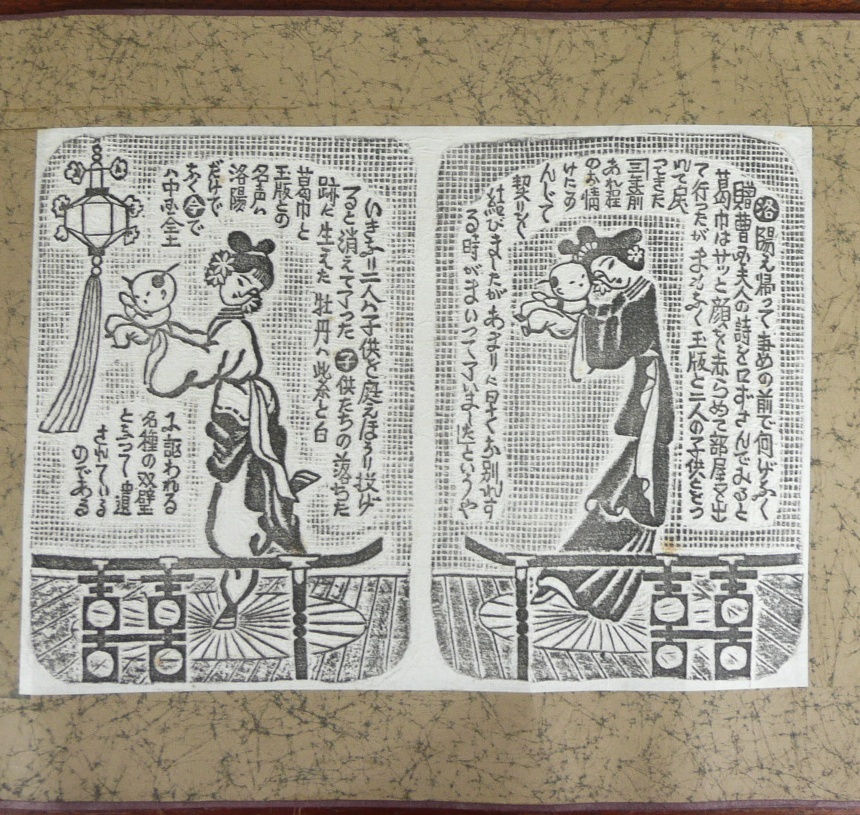 洛陽え帰って妻の前で何げなく
贈曹必夫人の詩を口ずさんでみると
葛巾はサッと顔を赤らめて部屋を出
て行ったがまもなく玉版と二人の子供をとう
れて戻
ってきた
三年前
あれ程
のお情
けにかめ
んじて
契りを
結びましたがあまりに早くお別れす
る時がまいってしまいましたというや
いきなり二人の子供を庭えほうり投げ
ると消えて了った子供たちの落ちた
跡に生えた牡丹は此糸と白
葛巾と
玉版との
名声は
洛陽
だけで
なく今で
は中国全土
に謳われる
名種の双璧
とされている
のである